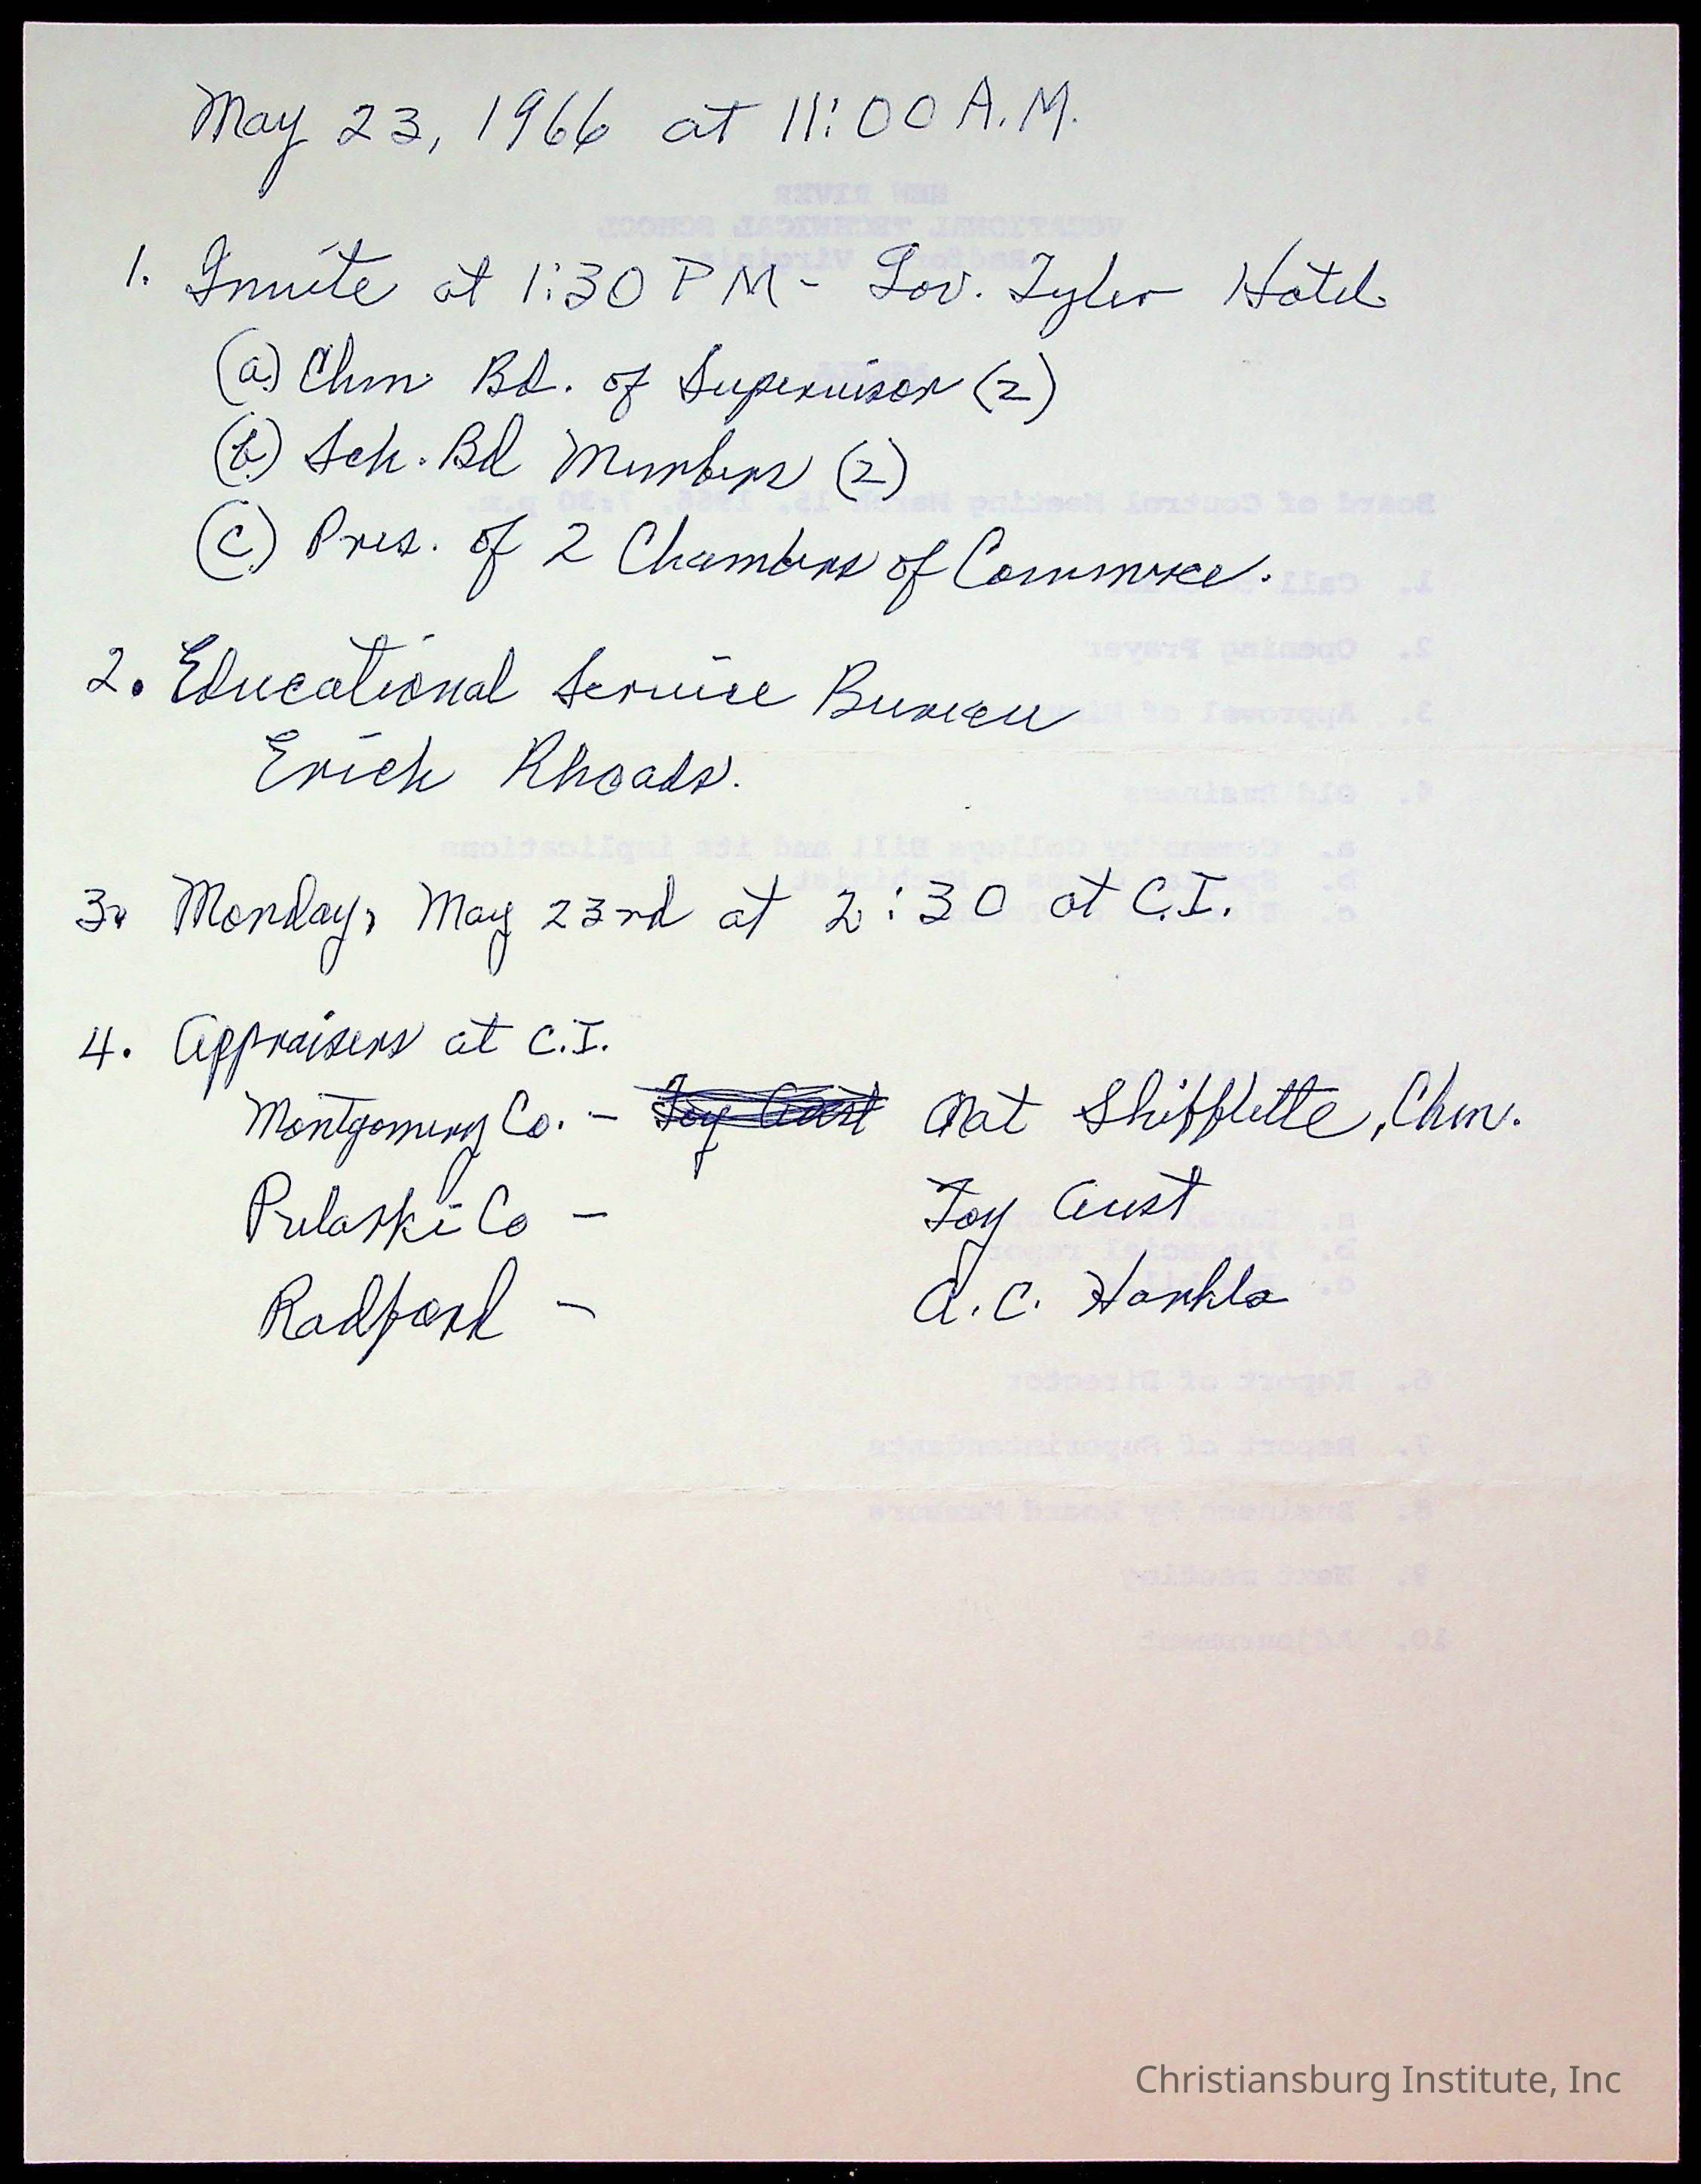 May 23, 1966 at 11:00 A.M.
1. Invite at 1:30 P M - Gov. Tyler Hotel
(a) Chm. Bd. of Supervisor (2)
(b) Sch. Bd Members (2)
(c) Pres. of 2 Chambers of Commerce.
2. Educational Service Bureau
Erich Rhoads.
3. Monday, May 23rd at 2:30 at C.I.
4. Appraisers at C.I.
Montgomery Co. - Toy Aust Nat Shifflette, Chm.
Pulaski Co - Toy Aust
Radford - A. C.
Christiansburg Institute, Inc